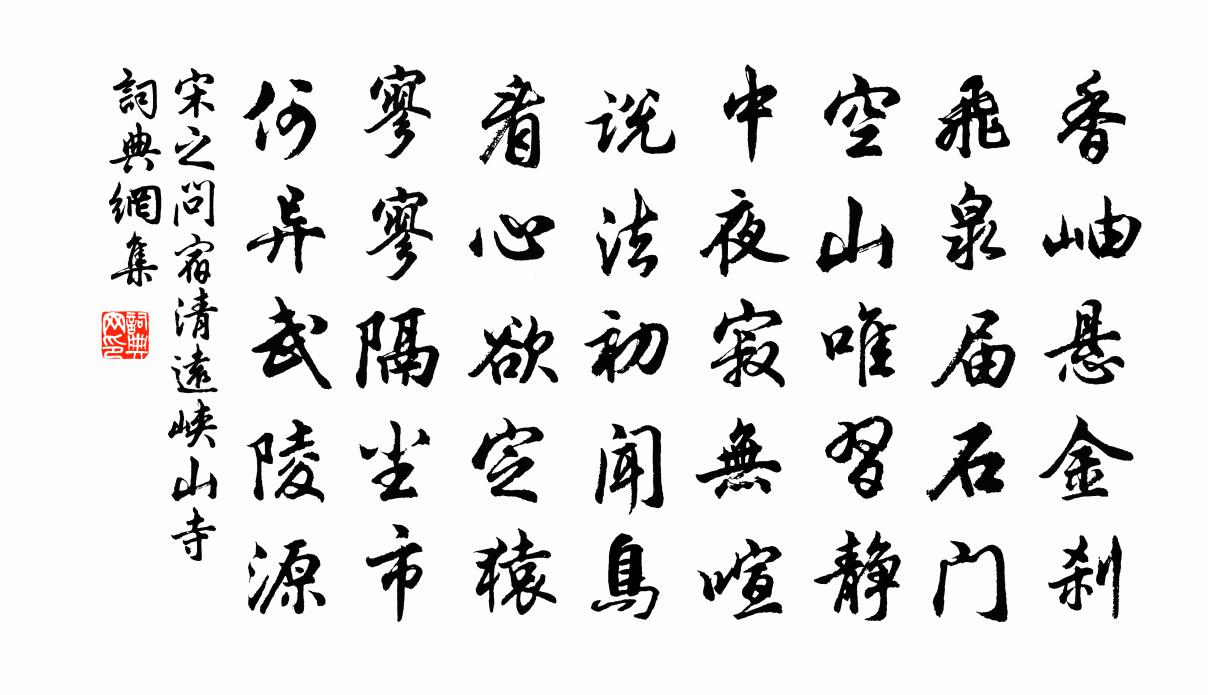 香岫悬金刹
飛泉届石门
空山唯習静
中夜寂無喧
说法初闻鳥
看心欲定猿
寥寥隔尘市
何异武陵源
宋之问宿清遠峡山寺
詞典網集
詞典网印